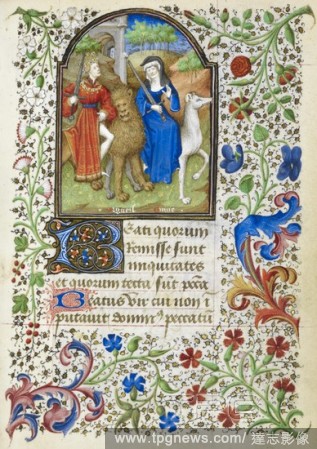 Beati quorum
remisse sunt
iniquitates
et quorum tecta sūt pecca
Beatus vir cui non i
putavit domin⁹ peccatū
www.tpgnews.com/ 達志影像